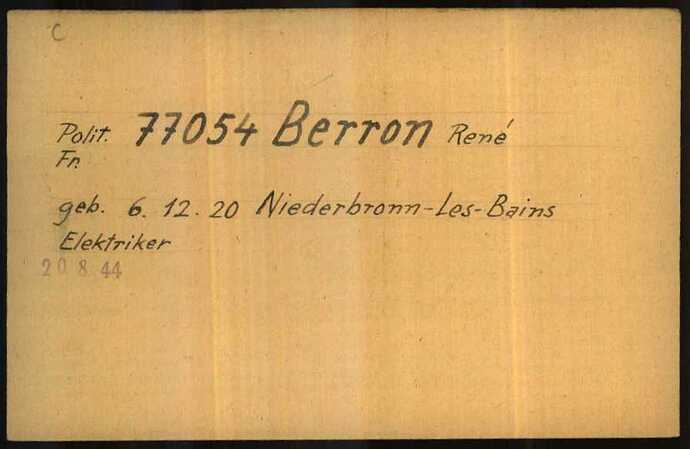 C
Polit. 77054 Berron René
Fr.
geb. 6. 12. 20 Niederbronn-Les-Bains
Elektriker
20 8 44